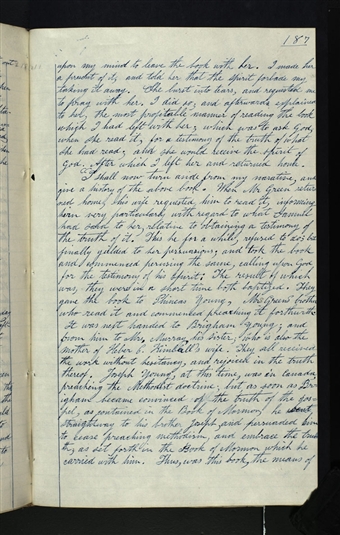 187
upon my mind to leave the book with her. I made her
a present of it, and told her that the spirit forbade my
taking it away. She burst into tears, and requested me
to pray with her. I did so, and afterwards explained
to her, the most profitable manner of reading the book
which I had left with her; which was to ask God,
when she read it, for a testimony of the truth of what
she had read, and she would receive the spirit of
God. After which I left her and returned home.
I shall now turn aside from my narative, and
give a history of the above book. When Mr Green return
ed home, his wife requested him to read it, informing
him very particularly with regard to what Samuel
had said to her, relative to obtaining a testimony of
the truth of it. This he for a while, refused to do, but
finally yielded to her persuasions, and took the book
and commenced perusing the same, calling upon God
for the testimony of his spirit: The result of which
was, they were in a short time both baptized. They
gave the book to Phineas Young, Mrs Green's brother
who read it and commenced preaching it forthwith.
It was next handed to Brigham Young; and
from him to Mrs Murray, his sister, who is also the
mother of Heber C. Kimball's wife. They all received
the work without hesitancy, and rejoiced in the truth
thereof. Joseph Young, at this time, was in Canada,
preaching the Methodist doctrine; but as soon as Bri
gham became convinced of the truth of the gos
pel, as contained in the Book of Mormon, he went
straightway to his brother Joseph, and persuaded him
to cease preaching methodism, and embrace the truth
as set forth in the Book of Mormon, which he
carried with him. Thus, was this book, the means of